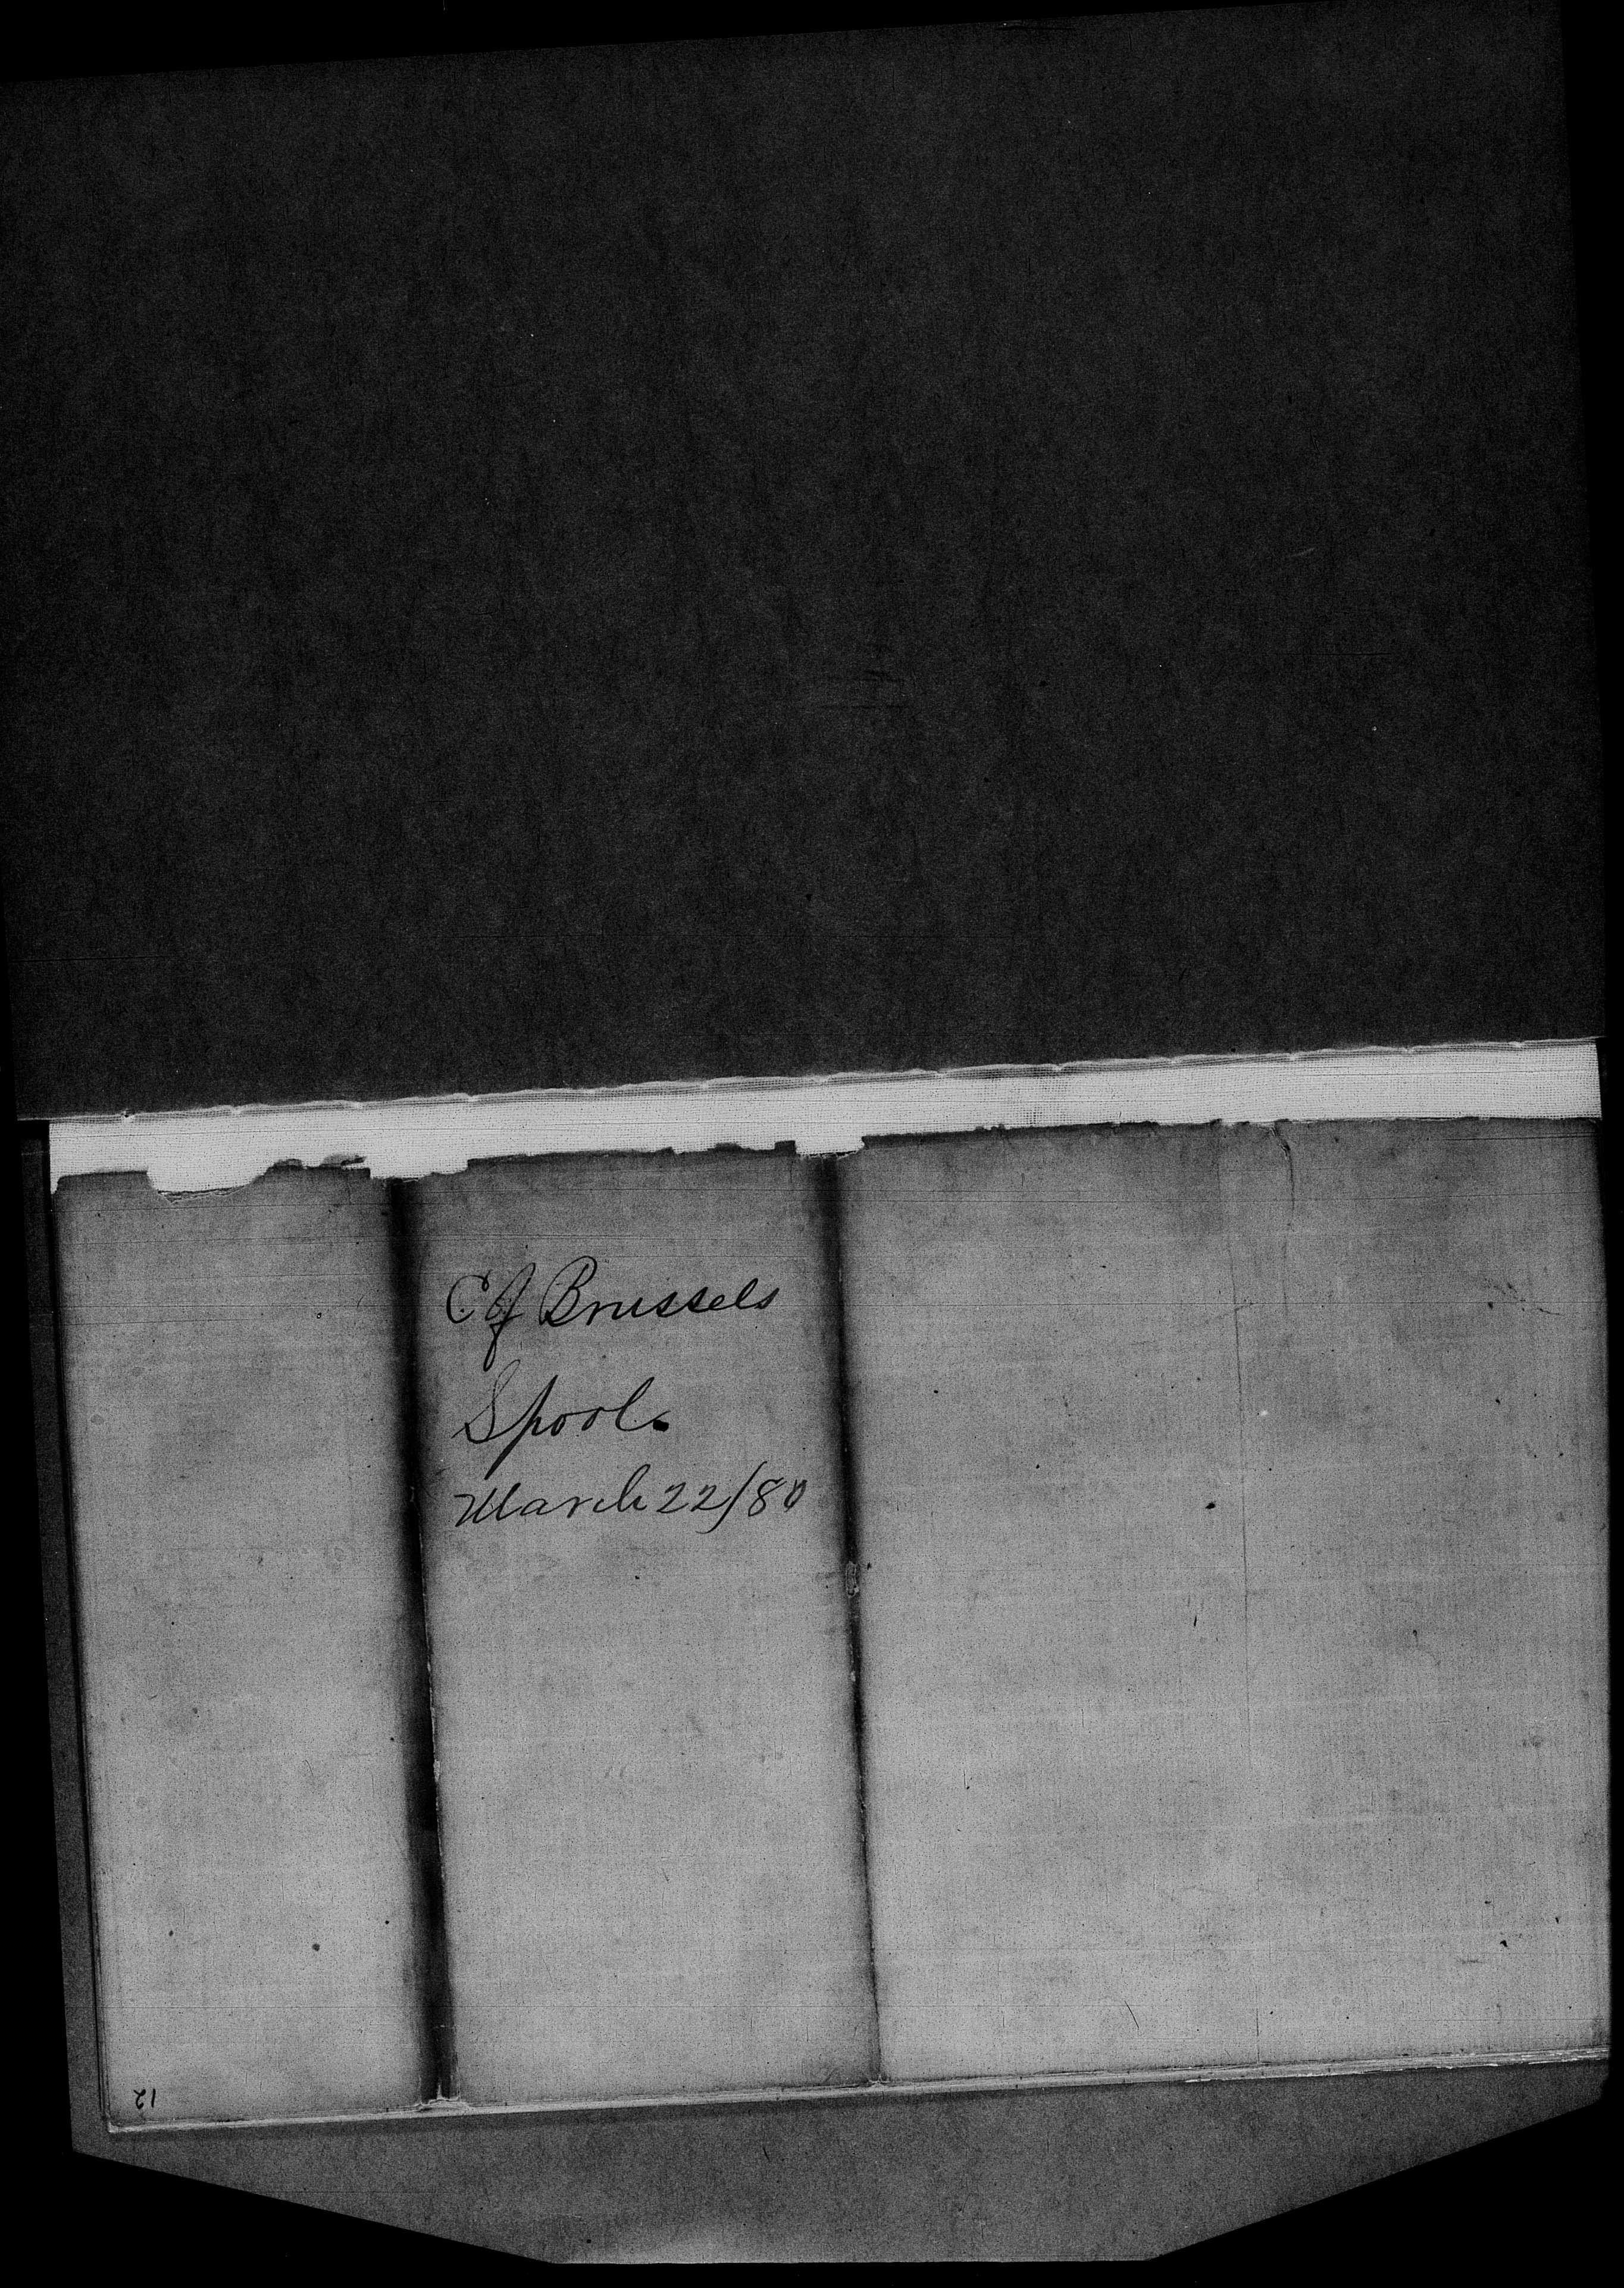 C of Brussels
Spool.
March 22/80
12